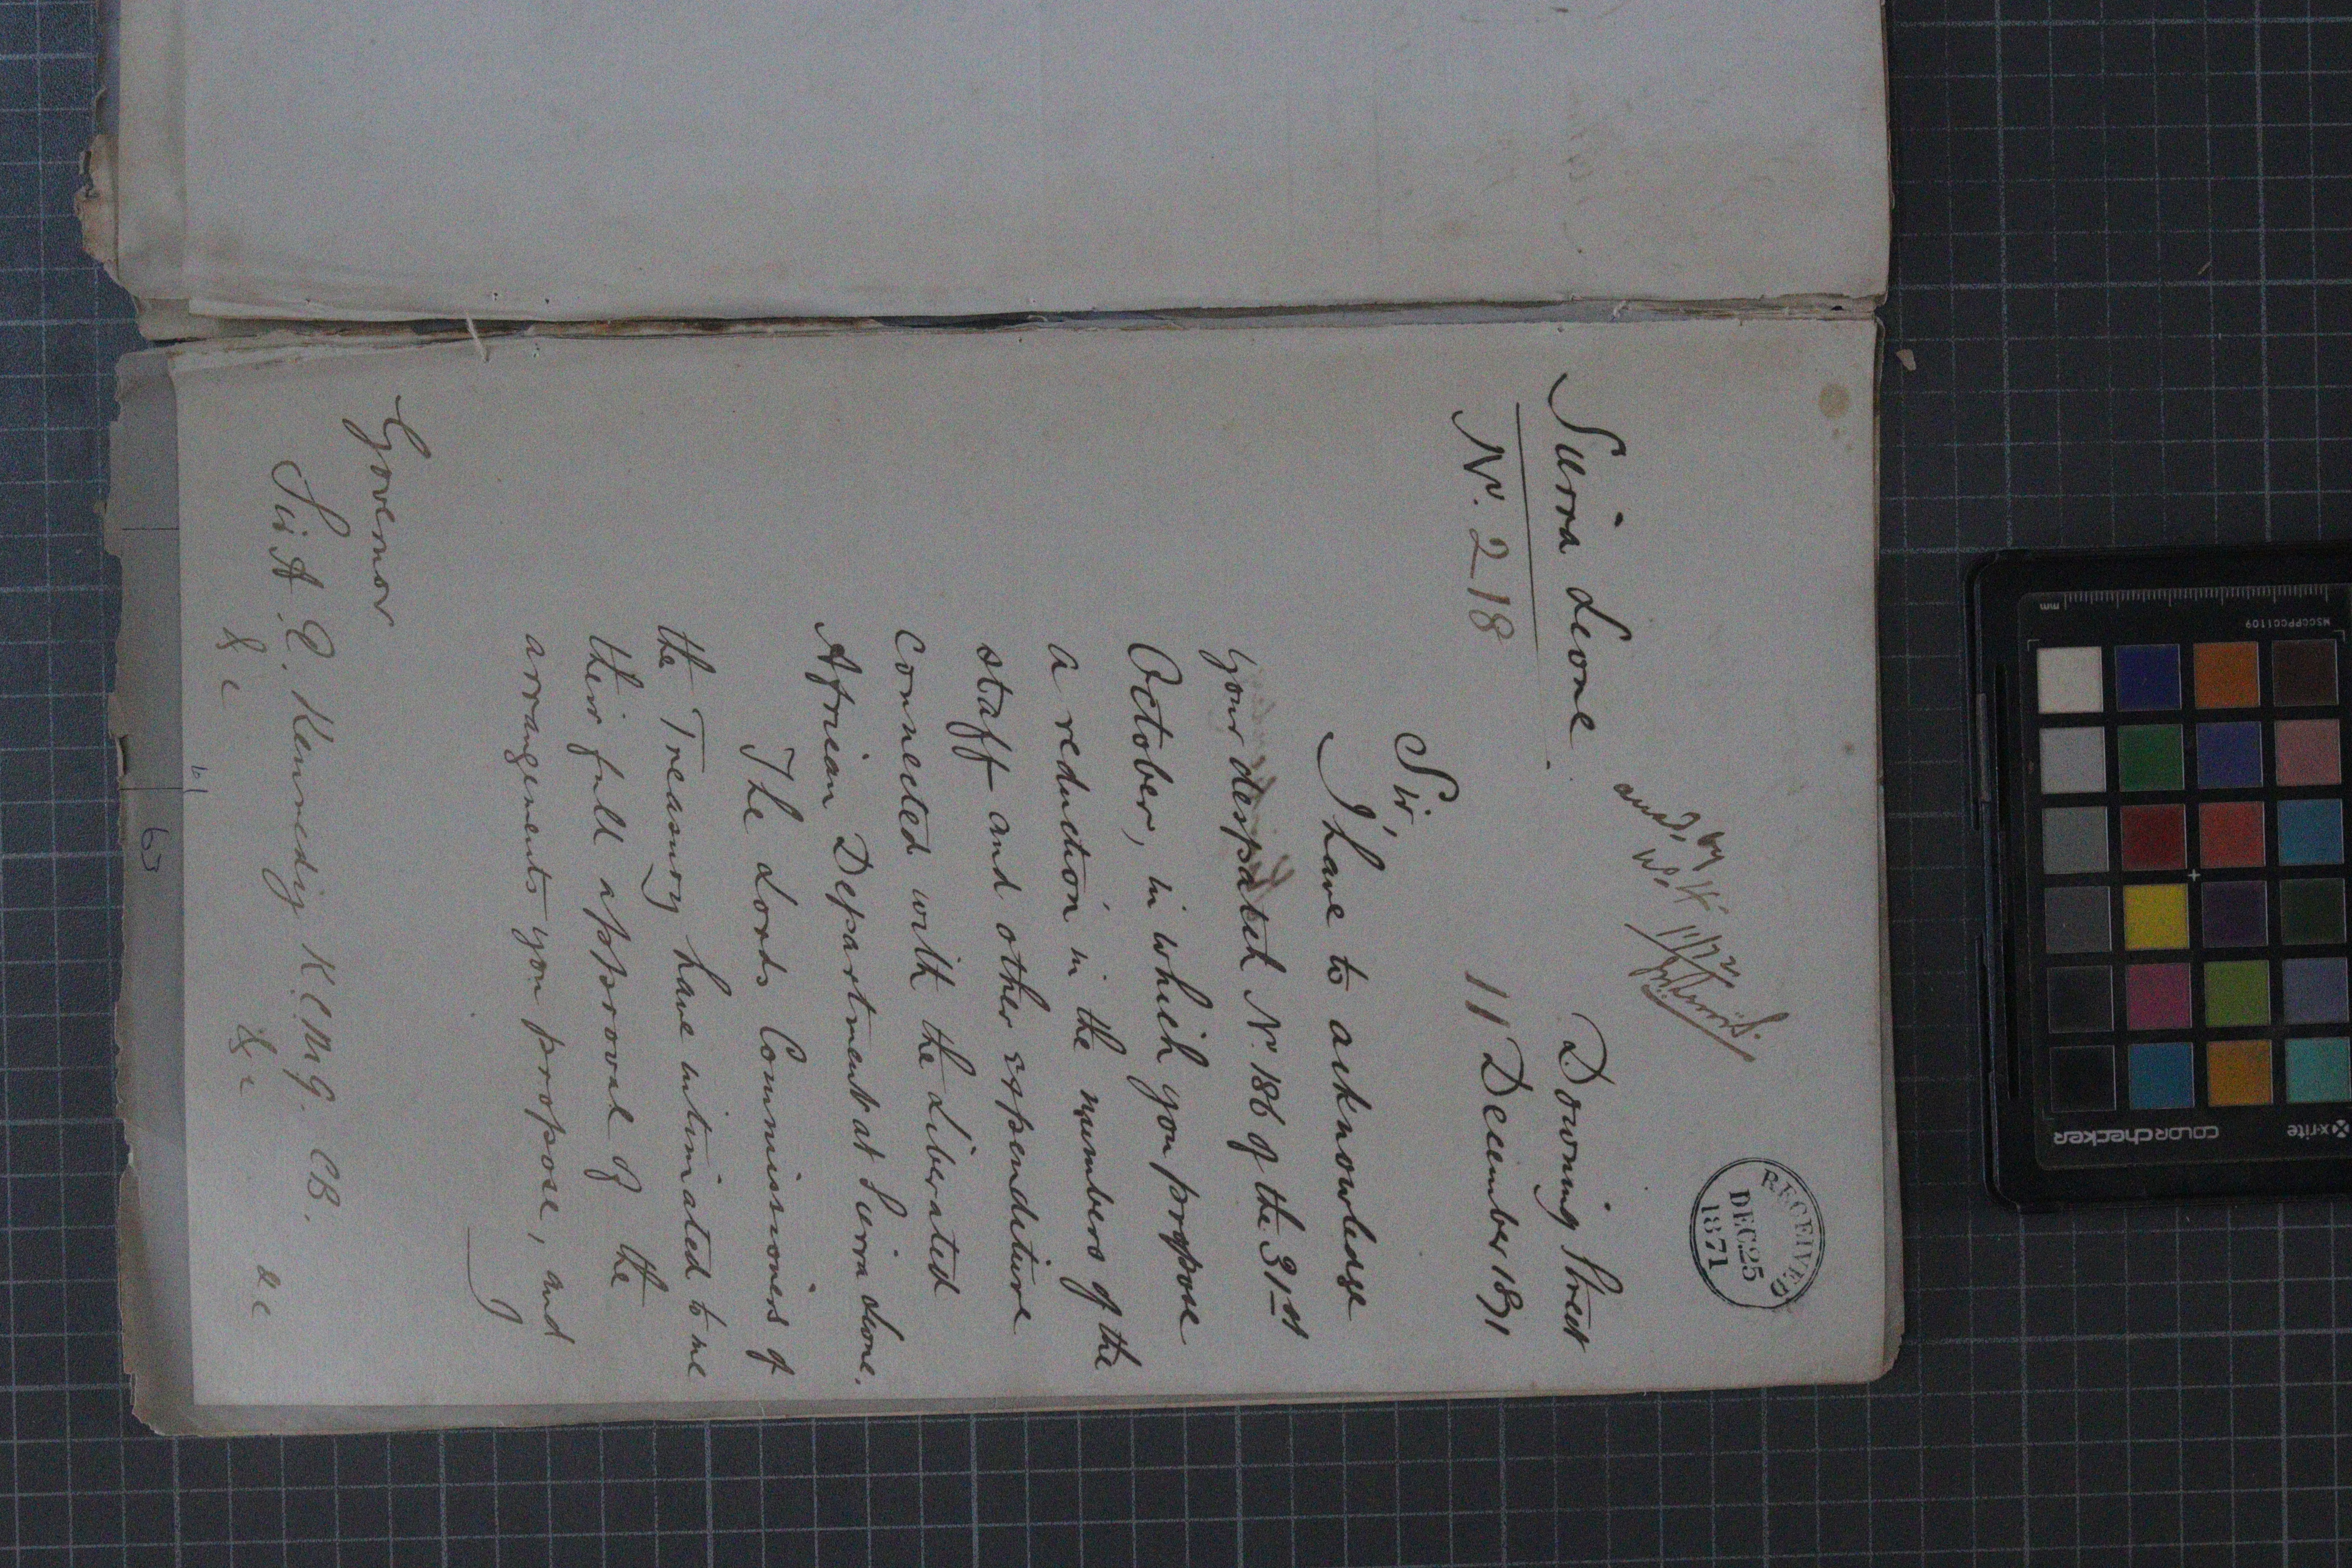 RECEIVED
DEC 25
1871
ansd. by
Sierra Leone.
Downing Street
N. 218
11 December 1871
Sir,
I have to acknowledge
your despatch N. 186 of the 31st
October, in which you propose
a reduction in the numbers of the
staff and other expenditure
connected with the Liberated
African Department at Sierra Leone.
The Lords Commissioners of
the Treasury have intimated to me
their full approval of the
arrangements you propose, and
I
Governor
Sir A. E. Kennedy K.C.M.G. CB.
&c &c &c
63
mm
MSCCPPCC1109
x-rite
colorchecker